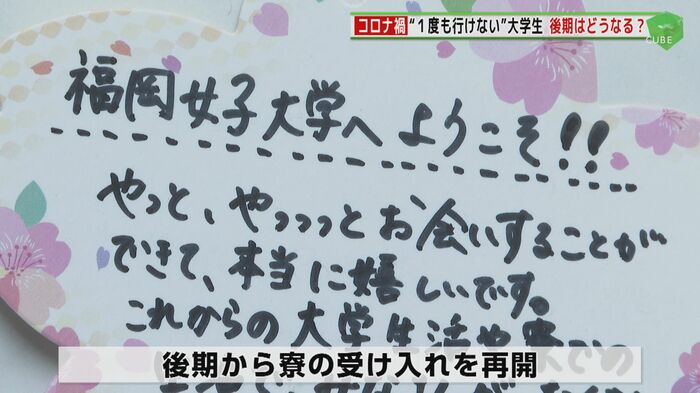 コロナ禍 “1度も行けない”大学生 後期はどうなる？
CUBE
福岡女子大学へ ようこそ!!
やっと、やっっっとお会いすることが
できて、本当に嬉しいです。
これからの大学生活や寮での
後期から寮の受け入れを再開